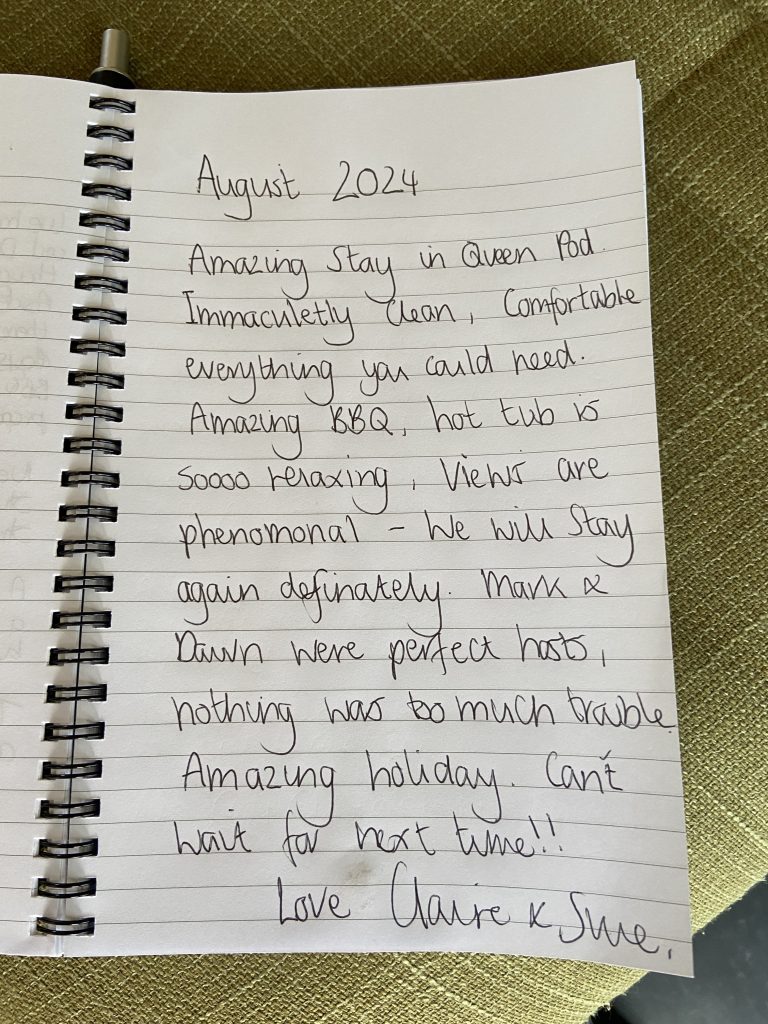 August 2024
Amazing Stay in Queen Pod.
Immaculetly Clean, Comfortable
everything you could need.
Amazing BBQ, hot tub is
soooo relaxing, Views are
phenomonal - We will Stay
again definately. Mark &
Dawn were perfect hosts,
nothing was too much trouble.
Amazing holiday. Can't
wait for next time!!
Love Claire & Sue.